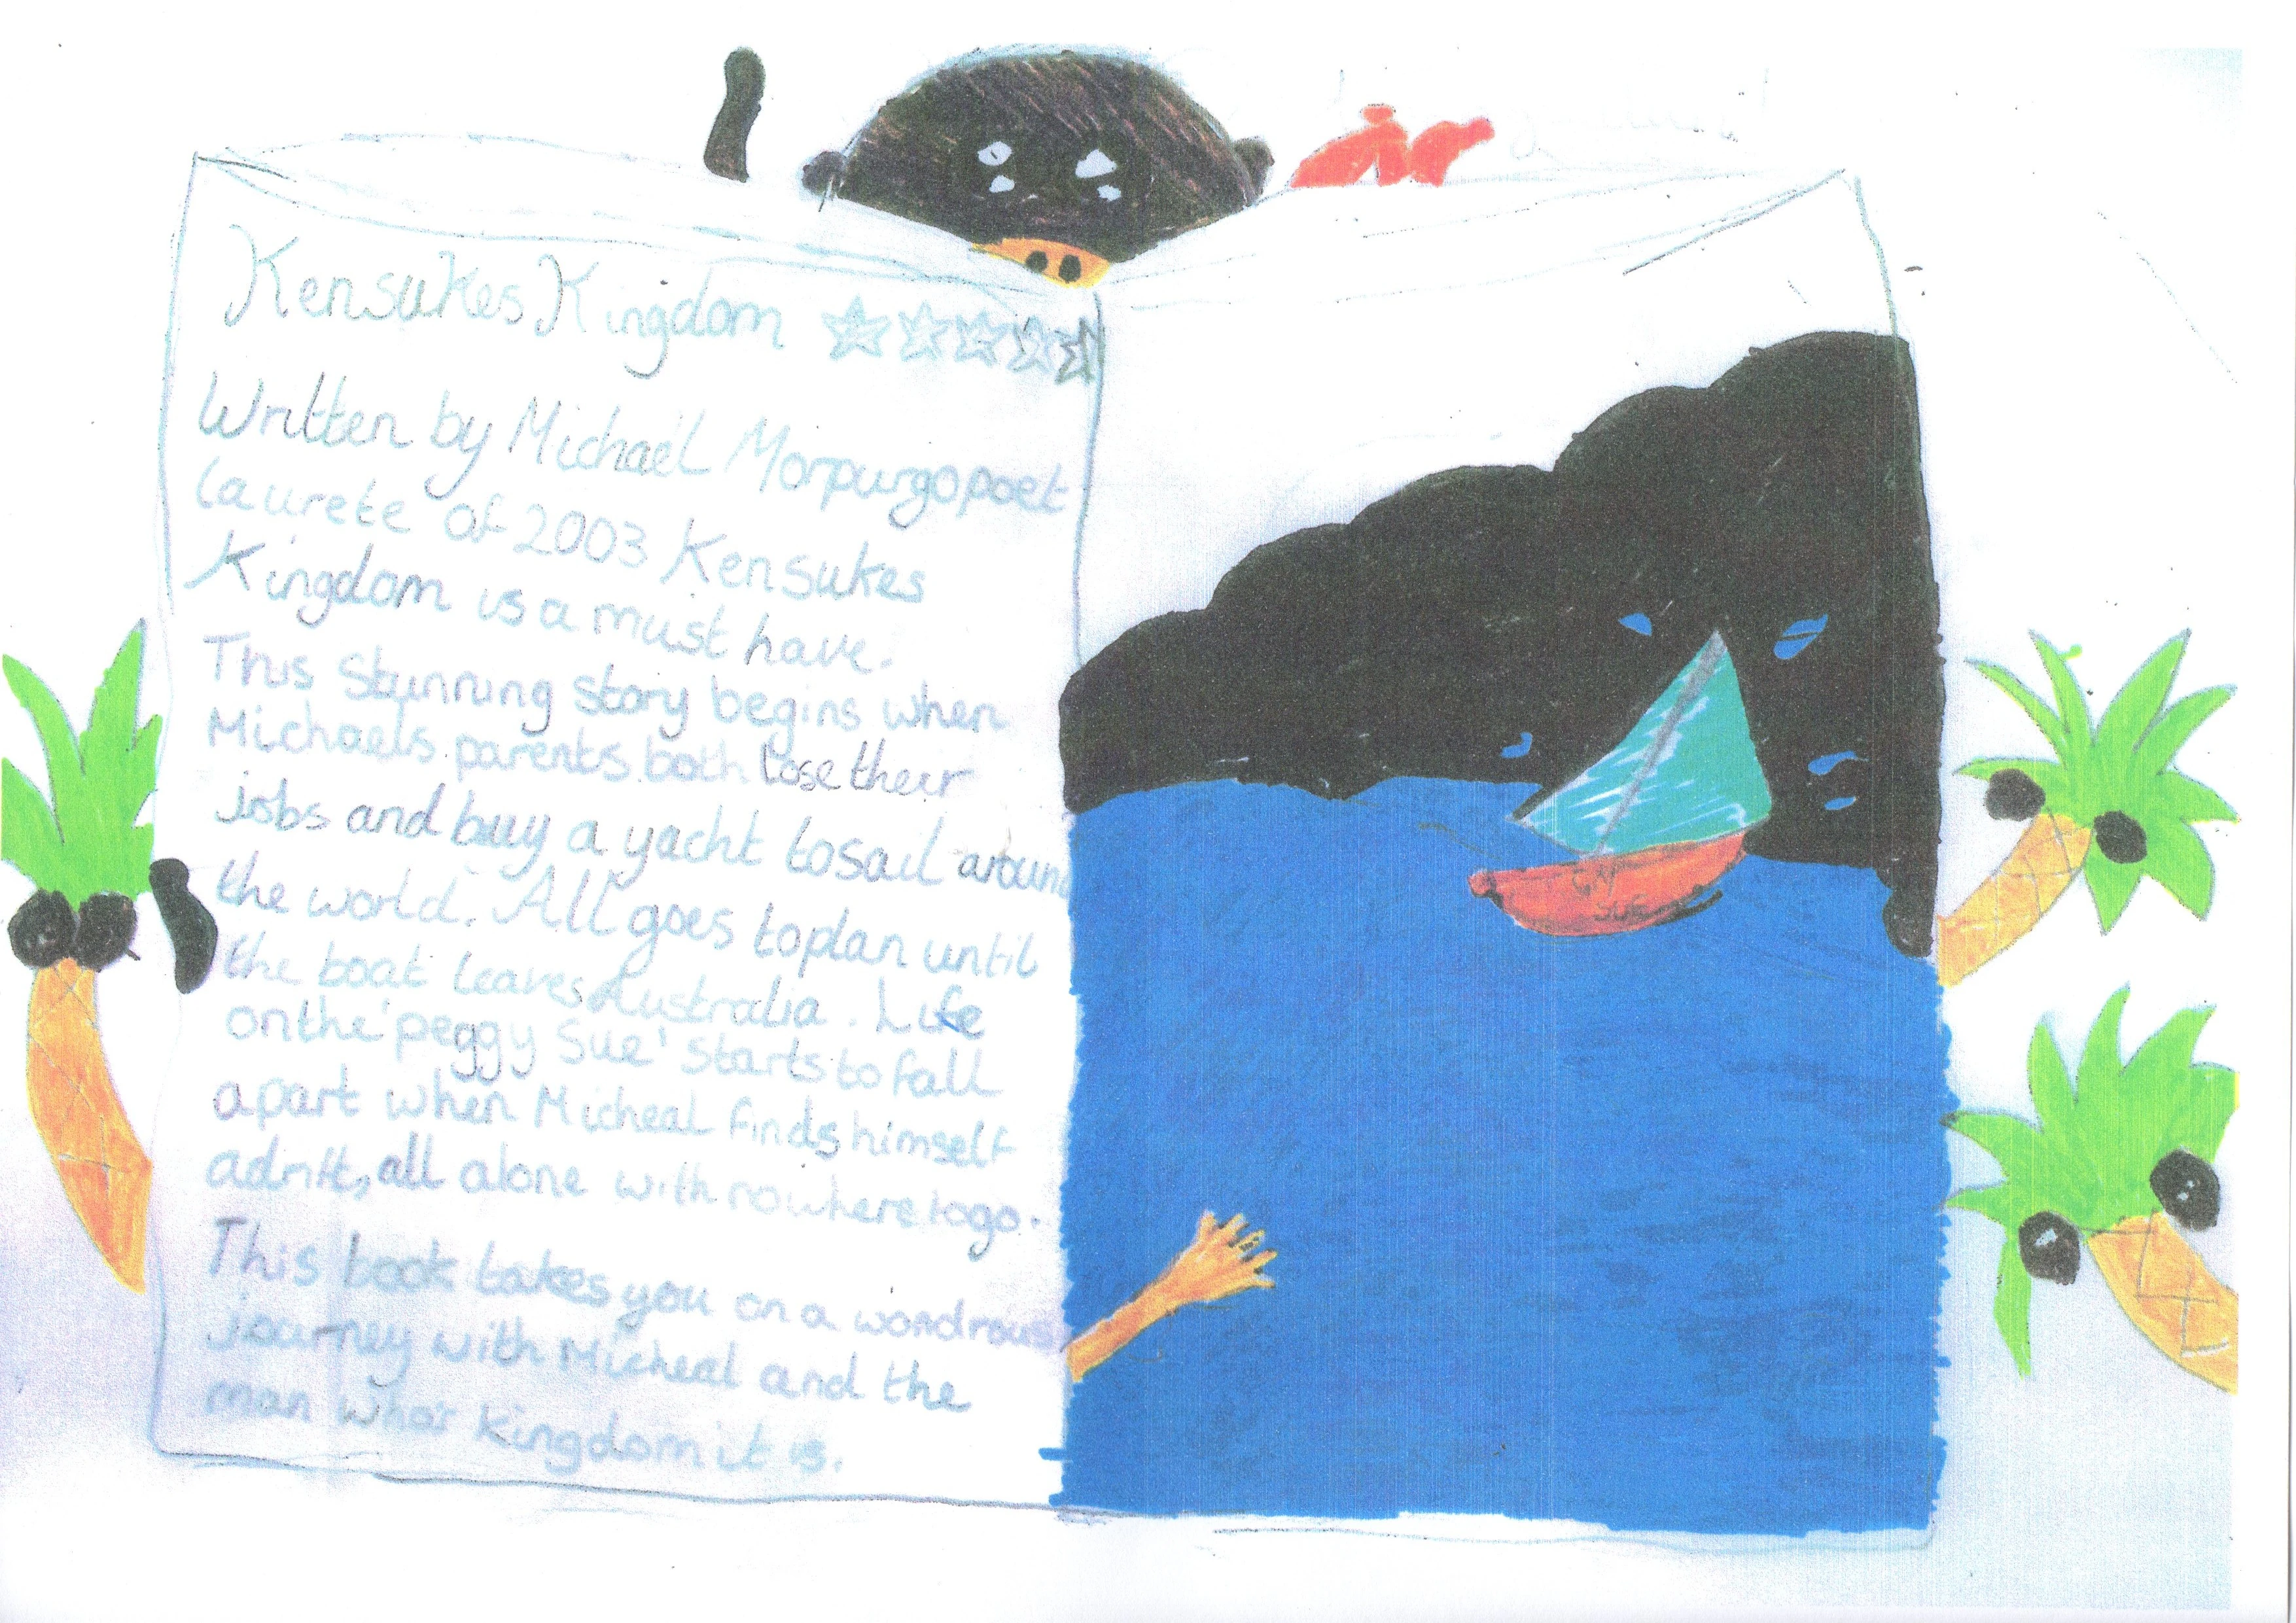 Kensukes Kingdom
Written by Michael Morpurgo poet
laurete of 2003 Kensukes
Kingdom is a must have.
This stunning story begins when
Michaels parents both lose their
jobs and buy a yacht to sail around
the world. All goes to plan until
the boat leaves Australia. Life
on the 'peggy Sue' starts to fall
apart when Micheal finds himself
adrift, all alone with nowhere to go.
This book takes you on a wondrous
journey with Micheal and the
man who's kingdom it is.